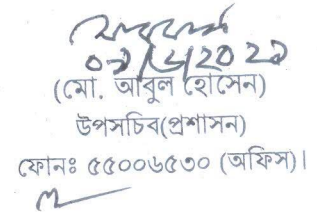 (মো. আবুল হোসেন)
উপসচিব(প্রশাসন)
ফোনঃ ৫৫০০৬৫৩০ (অফিস)।